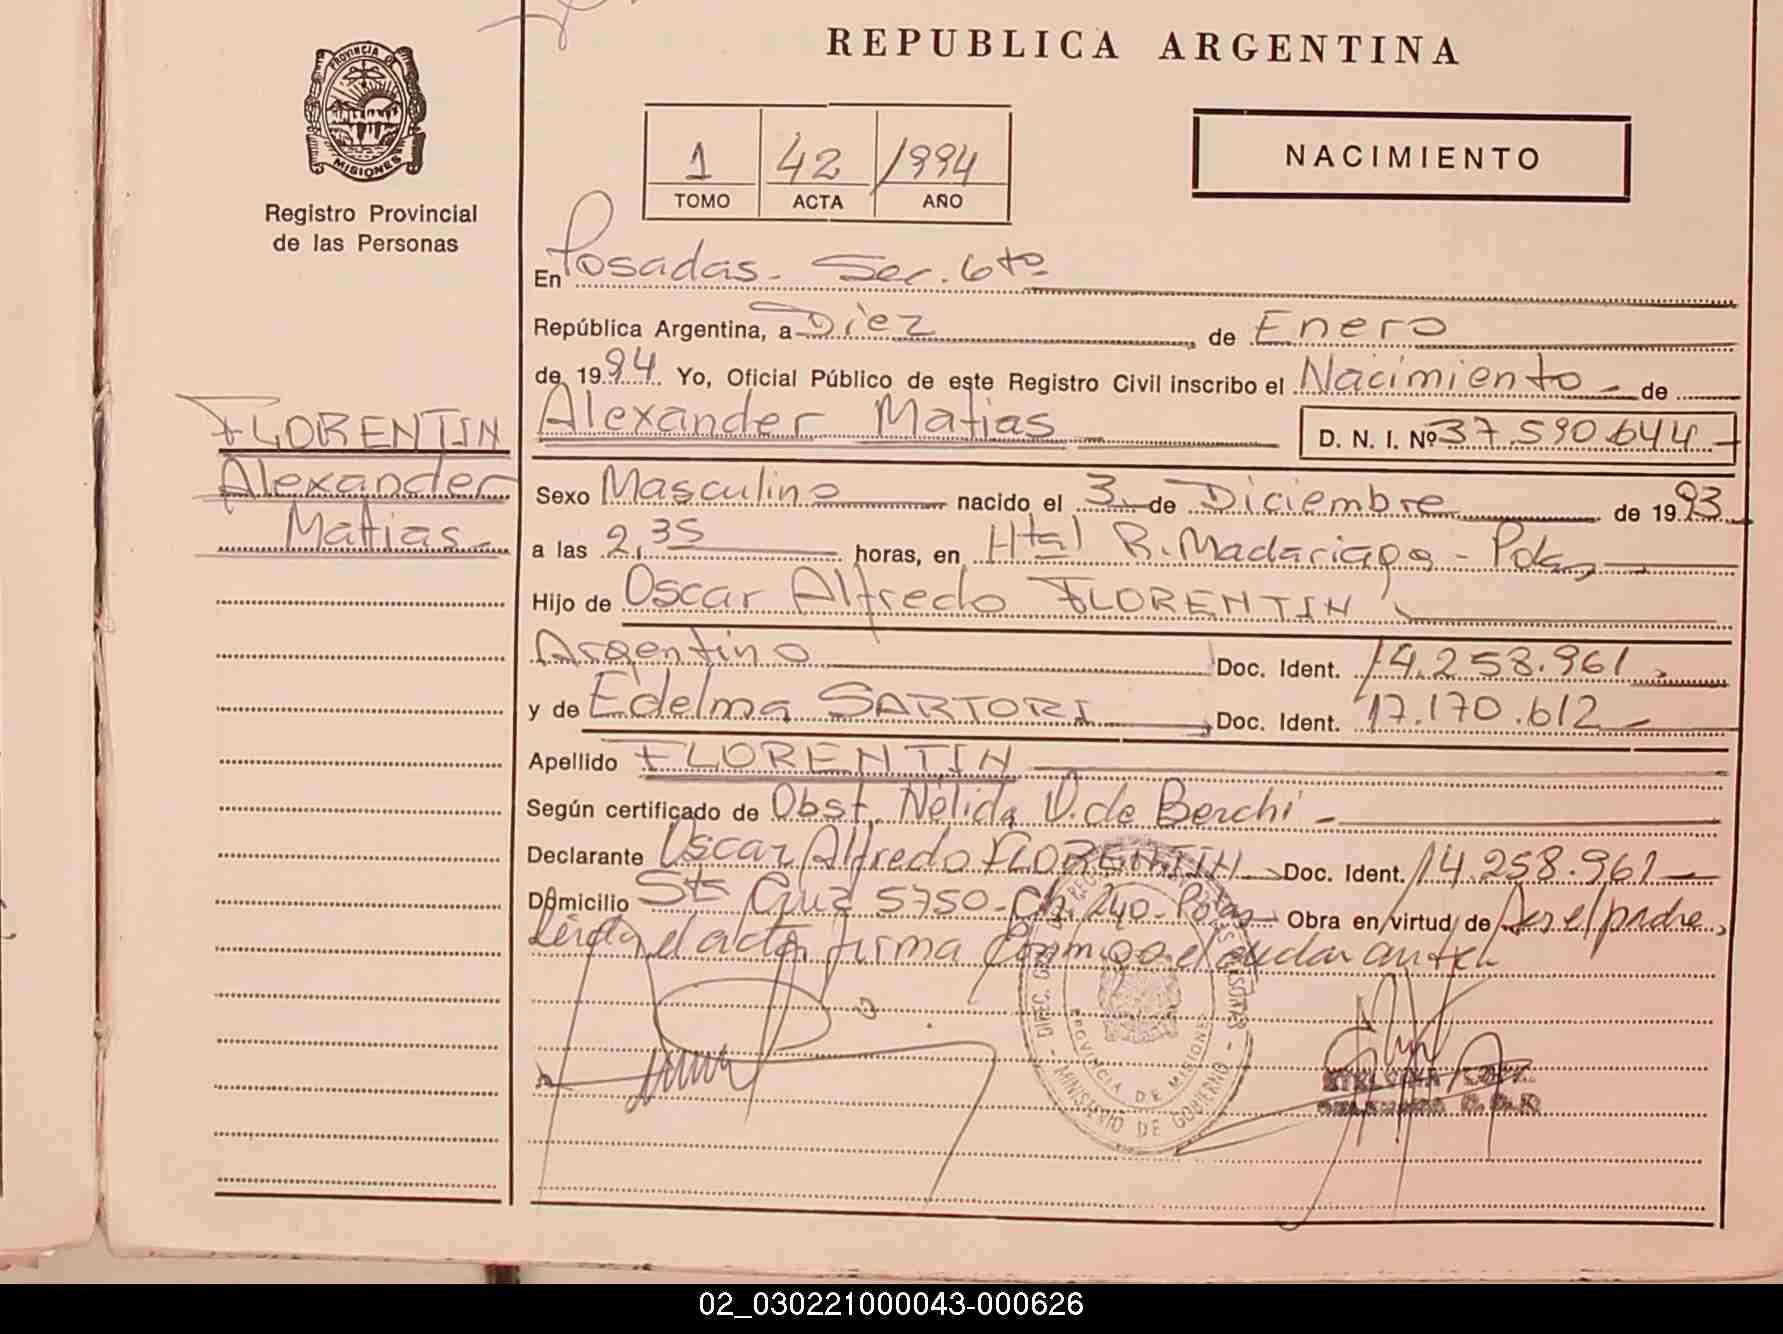 REPUBLICA ARGENTINA
PROVINCIA DE
MISIONES
Registro Provincial
de las Personas
1 42 1994
TOMO ACTA AÑO
NACIMIENTO
En Posadas - Sec. 6ta
República Argentina, a Diez de Enero
de 1994 Yo, Oficial Público de este Registro Civil inscribo el Nacimiento - de
Alexander Matias D. N. I. Nº 37.590.644
FLORENTIN
Alexander
Matias -
Sexo Masculino nacido el 3 de Diciembre de 1993
a las 2,35 horas, en Htal R. Madariaga - Pdas
Hijo de Oscar Alfredo FLORENTIN
Argentino Doc. Ident. 14.258.961
y de Edelma SARTORI Doc. Ident. 17.170.612
Apellido FLORENTIN
Según certificado de Obst. Nélida V. de Berchi -
Declarante Oscar Alfredo FLORENTIN Doc. Ident. 14.258.961
Domicilio Sta Cruz 5750 - Ch. 240 - Pdas Obra en virtud de Ser el padre,
Leida el acta, firma conmigo el
PROVINCIA DE MISIONES
MINISTERIO DE GOBIERNO
02_030221000043-000626